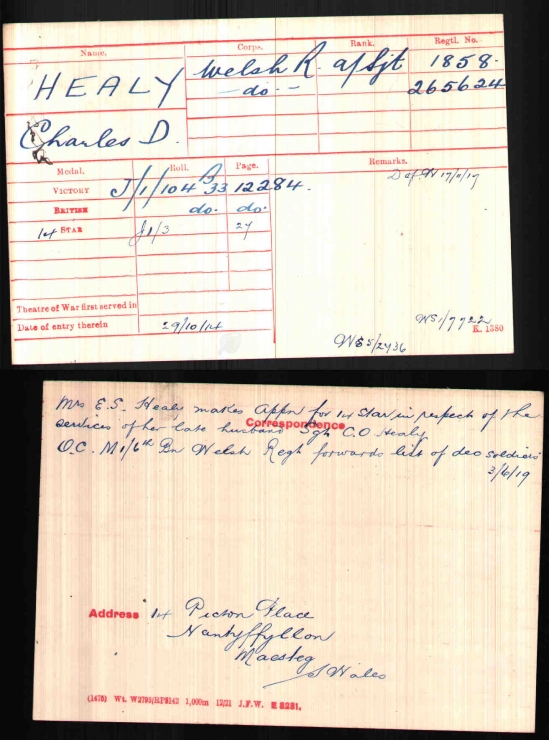 Name. Corps. Rank. Regtl. No.
HEALY Welsh R. a/Sjt 1858.
— do. — 265624
Charles D.
Medal. Roll. Page. Remarks.
VICTORY J/1/104 B 33 12284. D of W 17/11/17
BRITISH do. do.
14 STAR J1/3 24
Theatre of War first served in
Date of entry therein 29/10/14
WS1/7722
K. 1380
WS5/2436
Mrs E.S. Healy makes appn for 14 Star in respect of the
Correspondence
services of her late husband Sgt C.O Healy
O.C. 1/6th Bn Welsh Regt forwards list of dec soldiers
3/6/19
Address 14 Picton Place
Nantyffyllon
Maesteg
S Wales
(1476) Wt. W2795/RP5142 1,000m 12/21 J.F.W. E 8281.